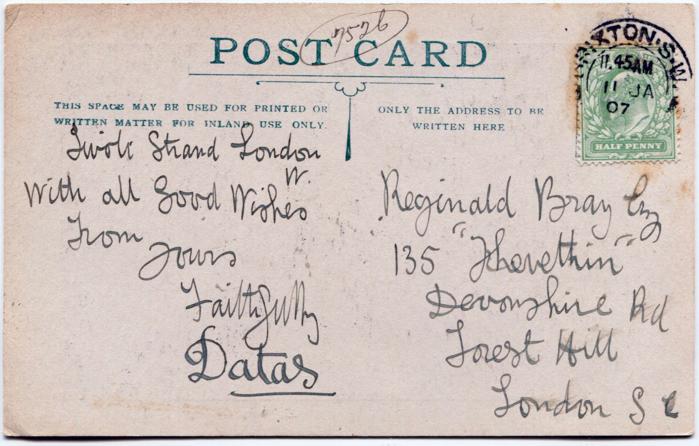 7526
POST CARD
THIS SPACE MAY BE USED FOR PRINTED OR
WRITTEN MATTER FOR INLAND USE ONLY.
ONLY THE ADDRESS TO BE
WRITTEN HERE
BRIXTON·S.W.
11.45AM
11 JA
07
HALF PENNY
Tivoli Strand London
W.
With all Good Wishes
From
Yours
Faithfully
Datas
Reginald Bray Esq
135 "Thevethin"
Devonshire Rd
Forest Hill
London S E